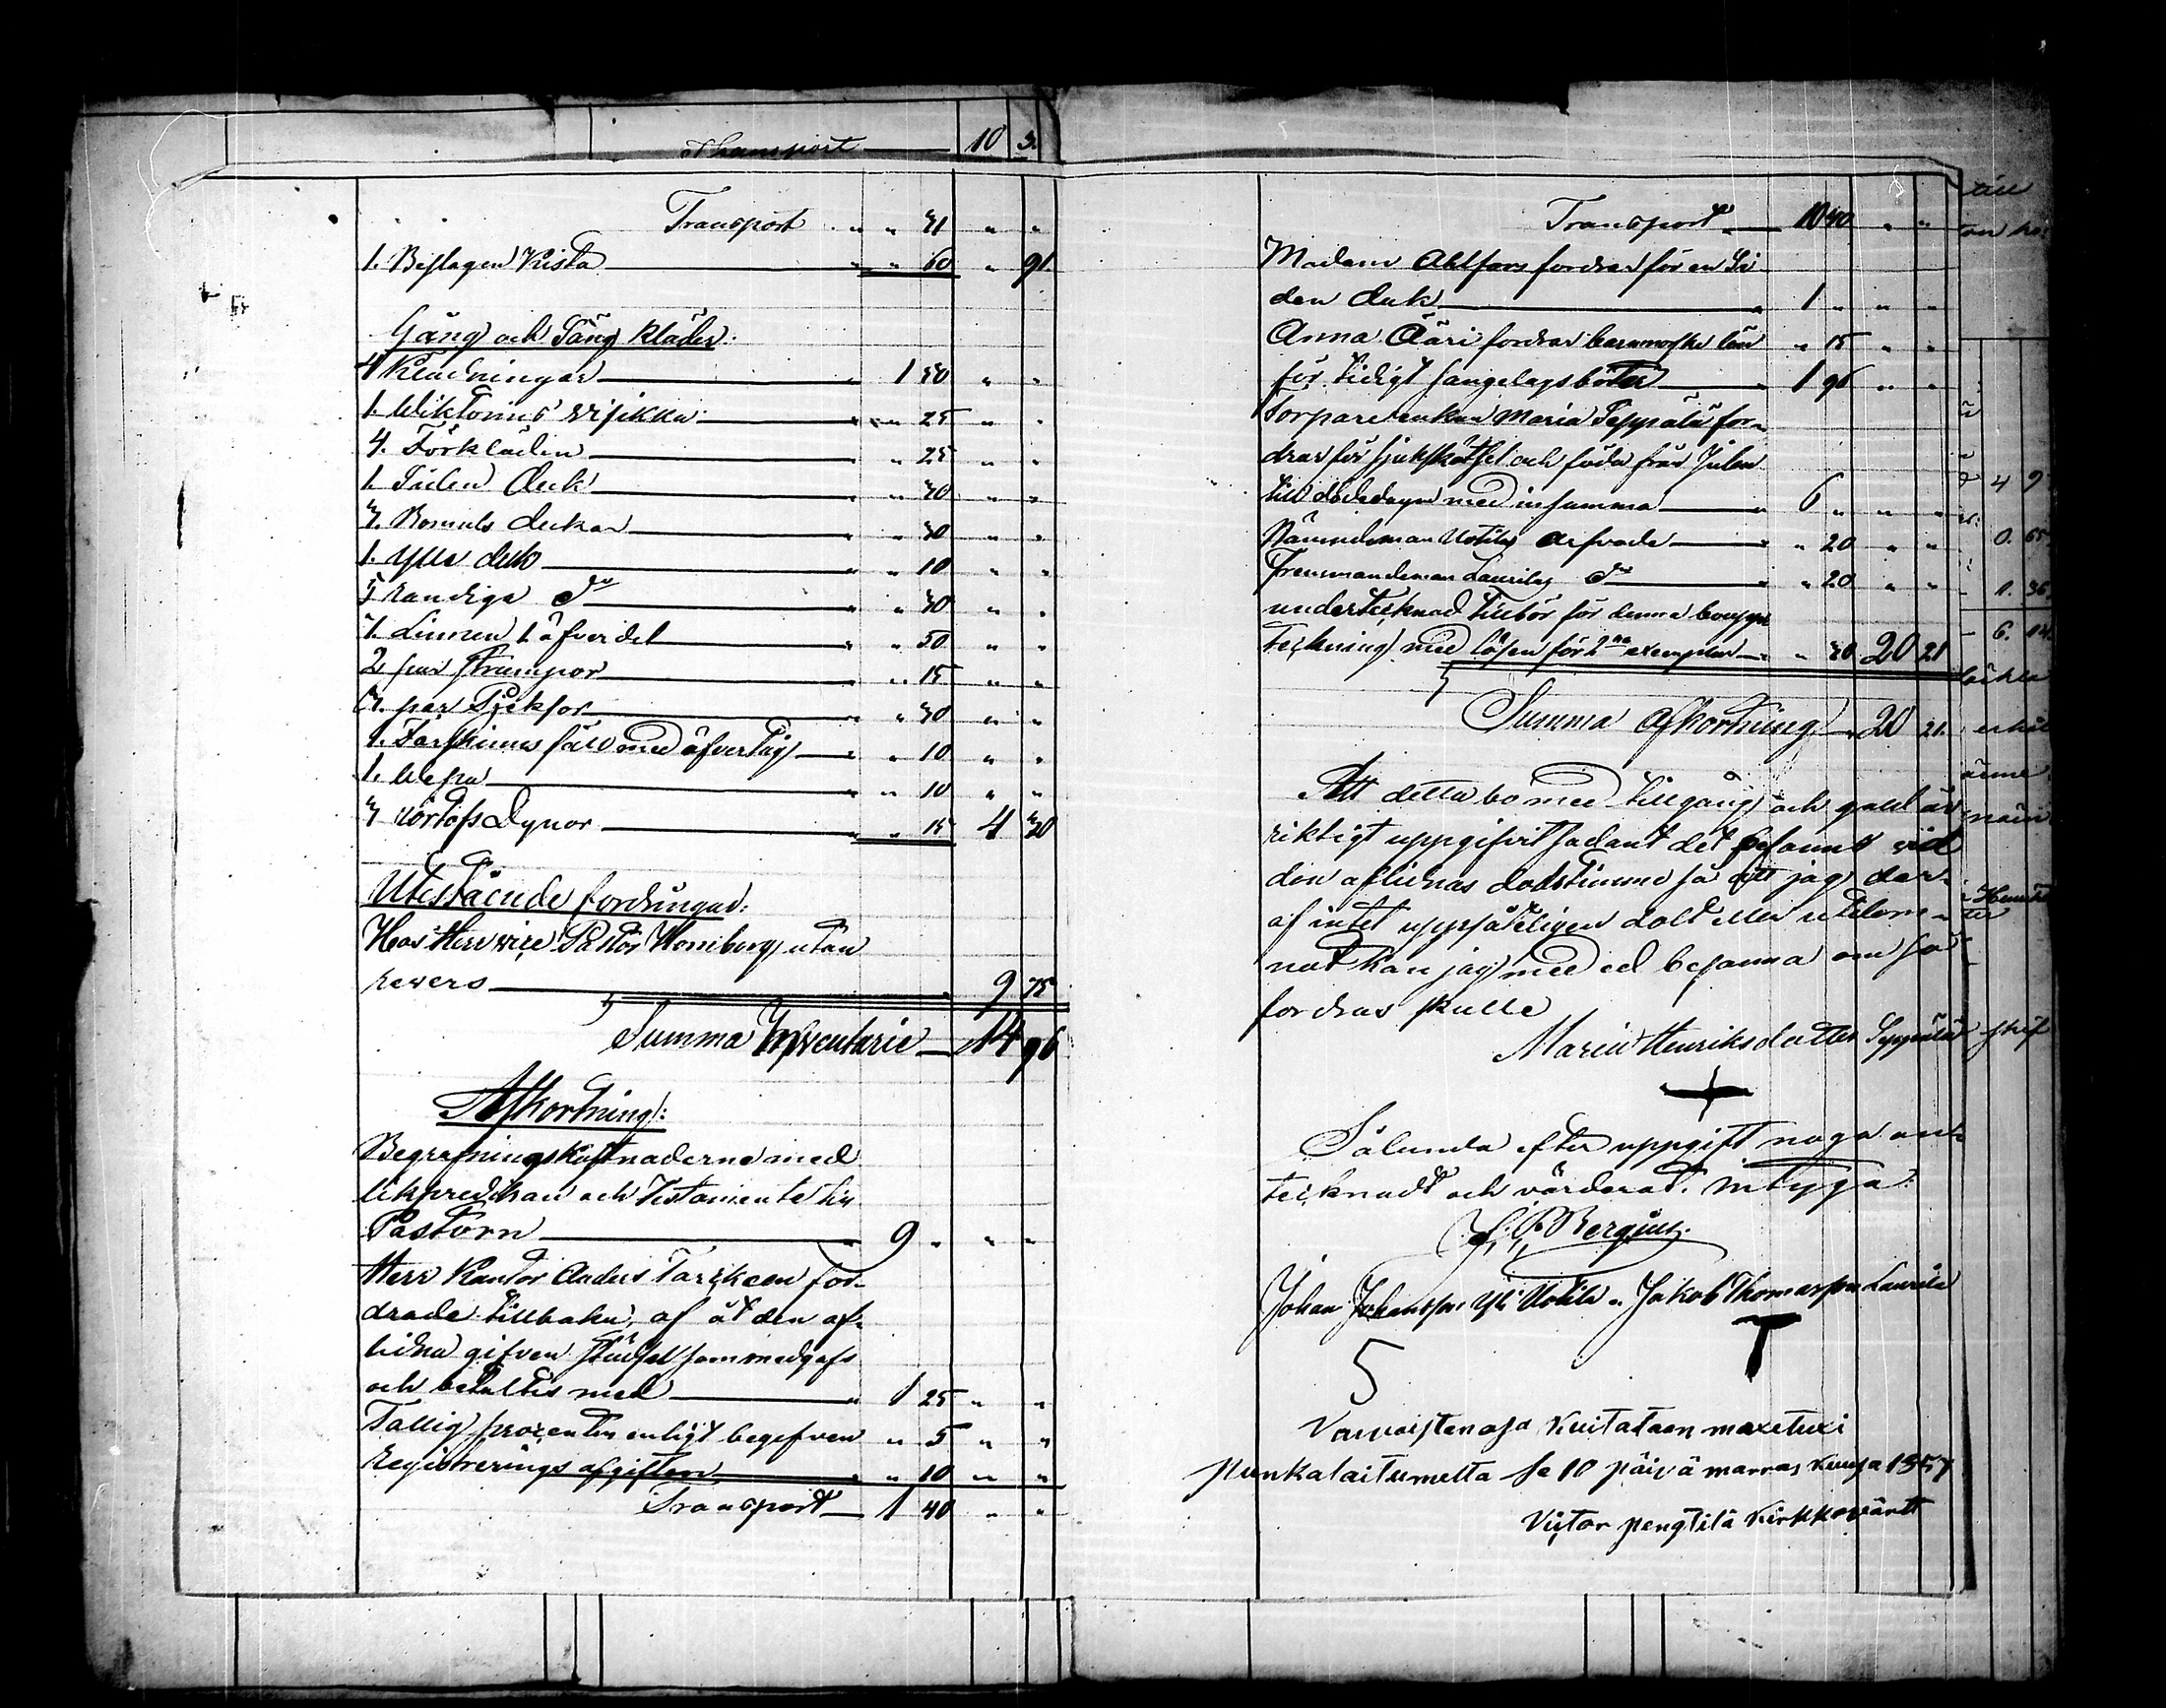 Transport — 10 3.
Transport " " 31 " "
1. Beslagen Kista — " " 60 " 91.
Gång och Säng kläder:
4 Kladningar — " 1 30 " "
1. Wiktorins — " " 25 " "
4. Förkläden — " " 25 " "
1. Siden Duk — " " 30 " "
3. Bomuls dukar — " " 30 " "
1. Ylle duk — " " 10 " "
5 randiga do — " " 30 " "
1. Linnen 1 öfverdel — " " 50 " "
2 par strumpor — " " 15 " "
3. par Pjeksor — " " 30 " "
1. Fårskinns fäll med öfvertåg — " " 10 " "
1. Wepa — " " 10 " "
3 Dynor — " " 15 4 30
Utestående fordringar:
Hos Herr vice Pastor Homberg utan
revers — 9 75
Summa Inventarie — 14 96
Afkortning:
Begrafningskostnaderne med
likpredikan och Testamente till
Pastorn — " 9 " " "
Herr Kantor Anders Tarkken for-
drade tillbaka, af åt den af-
lidna gifven städsel som medgafs
och betaltes med — " 1 25 " "
Fattig procenten enligt begefven " " 5 " "
Registrerings afgiften — " " 10 " "
Transport — 1 40 " "
Transport — 10 40 " "
Madam Ahlfors fordrar för en Si-
den duk — " 1 " " "
Anna Ääri fordrar lån " 15 " "
för — " 1 96 " "
Torpare enkan Maria Seppälä for-
drar för sjukskötsel och föda från Julen
till dödedagen med insumma — " 6 " " "
Nämndeman Uotila arfvode — " " 20 " "
Laurila do — " " 20 " "
undertecknad tillbör för denna bouppt
teckning med lösen för 2ne exemplar — " 30 20 21
Summa Afkortning — 20 21.
Att detta bo med tillgång och gäld är
riktigt uppgifvit sadant det befanns vid
den aflidnas dödstimme så att jag der-
af intet uppsåteligen dolt eller utelem-
nat kan jag med ed besanna om så
fordras skulle
Maria Henriksdotter Seppälä
Sålunda efter uppgift noga an-
tecknadt och värderat. intyga:
Bergius.
Johan Johansson Yli Uotila " Jakob Thomasson Laurila
T
5
Vaivaisten osa Kuitataan maxetuxi
punkalaitumella se 10 päivä marras kuusa 1857
Victor pengtilä Kirkkovärtt